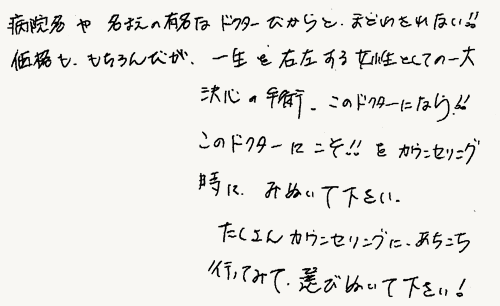 病院名や名まえの有名なドクターだからと、まどわされない!!
価格も、もちろんだが、一生を右左する女性としての一大
決心の手術。このドクターになら!!
このドクターにこそ!!をカウンセリング
時に、みぬいて下さい。
たくさんカウンセリングに、あちこち
行ってみて、選びぬいて下さい!